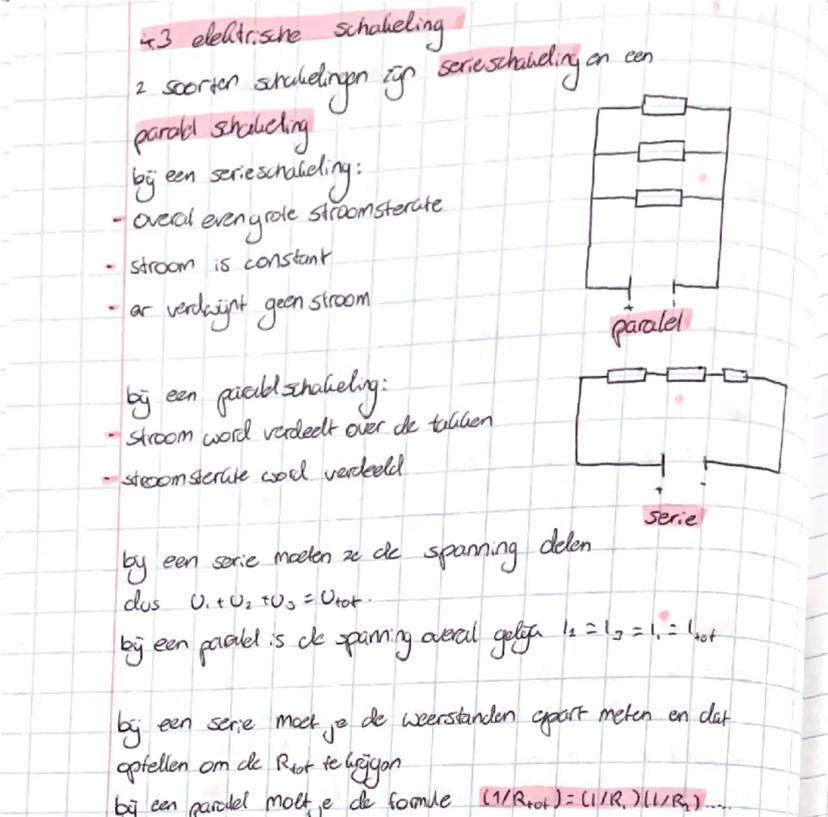 4.3 elektrische schakeling
2 soorten schakelingen zijn serieschakeling en een
paralel schakeling
bij een serieschakeling:
- overal even grote stroomsterkte
- stroom is constant
- er verdwijnt geen stroom
+ -
paralel
bij een paralelschakeling:
- stroom word verdeelt over de takken
- stroomsterkte word verdeeld
+ -
serie
bij een serie moeten ze de spanning delen
dus U₁ + U₂ + U₃ = Utot.
bij een paralel is de spanning overal gelijk I₂ = I₃ = I₁ = Itot
bij een serie moet je de weerstanden apart meten en dat
optellen om de Rtot te krijgen
bij een paralel moet je de formule (1/Rtot) = (1/R₁)(1/R₂).....